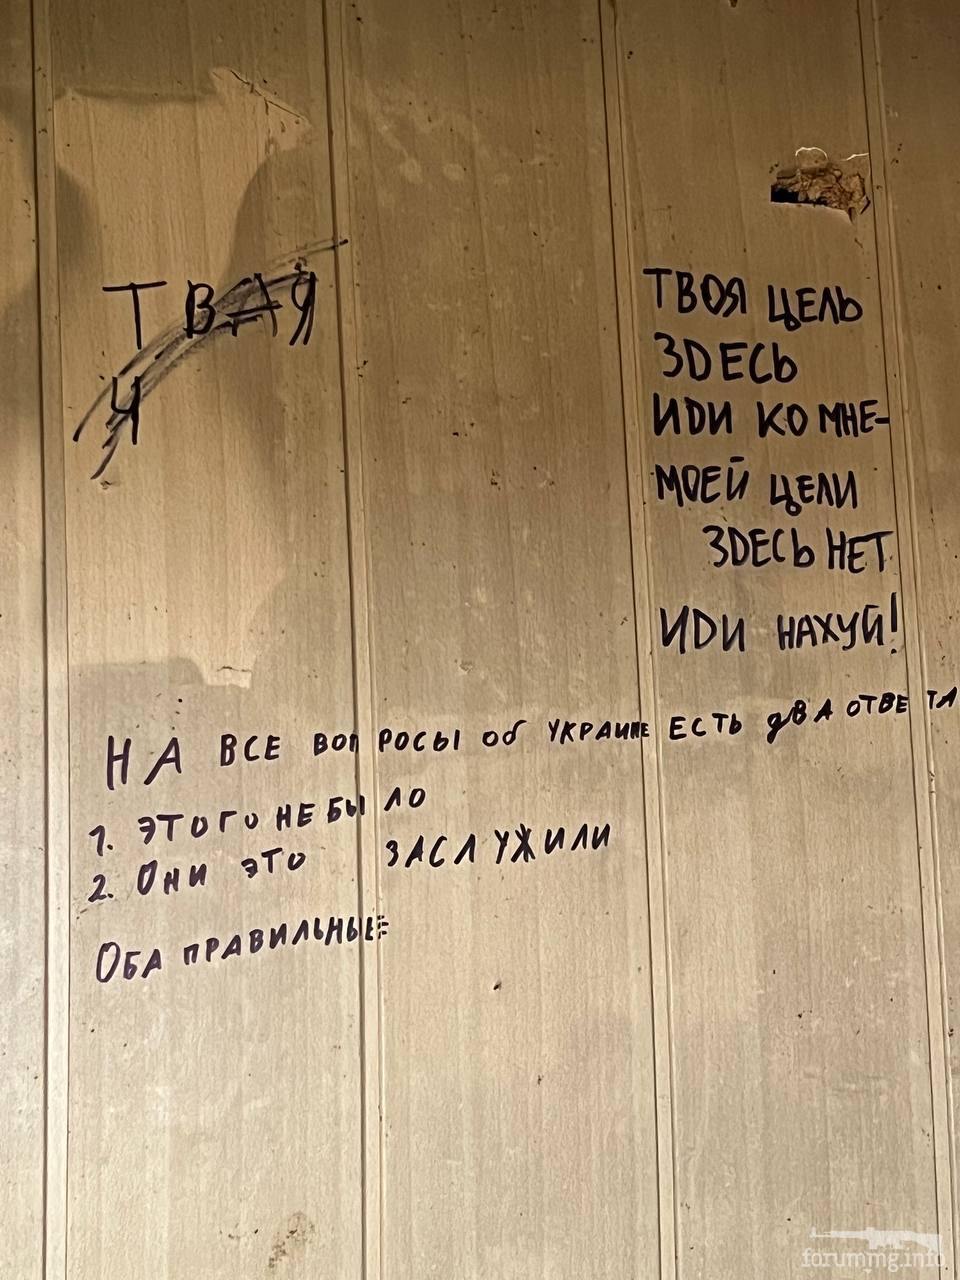 ТВАЯ
Ч
ТВОЯ ЦЕЛЬ
ЗДЕСЬ
ИДИ КО МНЕ-
МОЕЙ ЦЕЛИ
ЗДЕСЬ НЕТ
ИДИ НАХУЙ!
НА ВСЕ ВОПРОСЫ ОБ УКРАИНЕ ЕСТЬ ДВА ОТВЕТА
1. ЭТОГО НЕ БЫЛО
2. ОНИ ЭТО ЗАСЛУЖИЛИ
ОБА ПРАВИЛЬНЫЕ
forummg.info